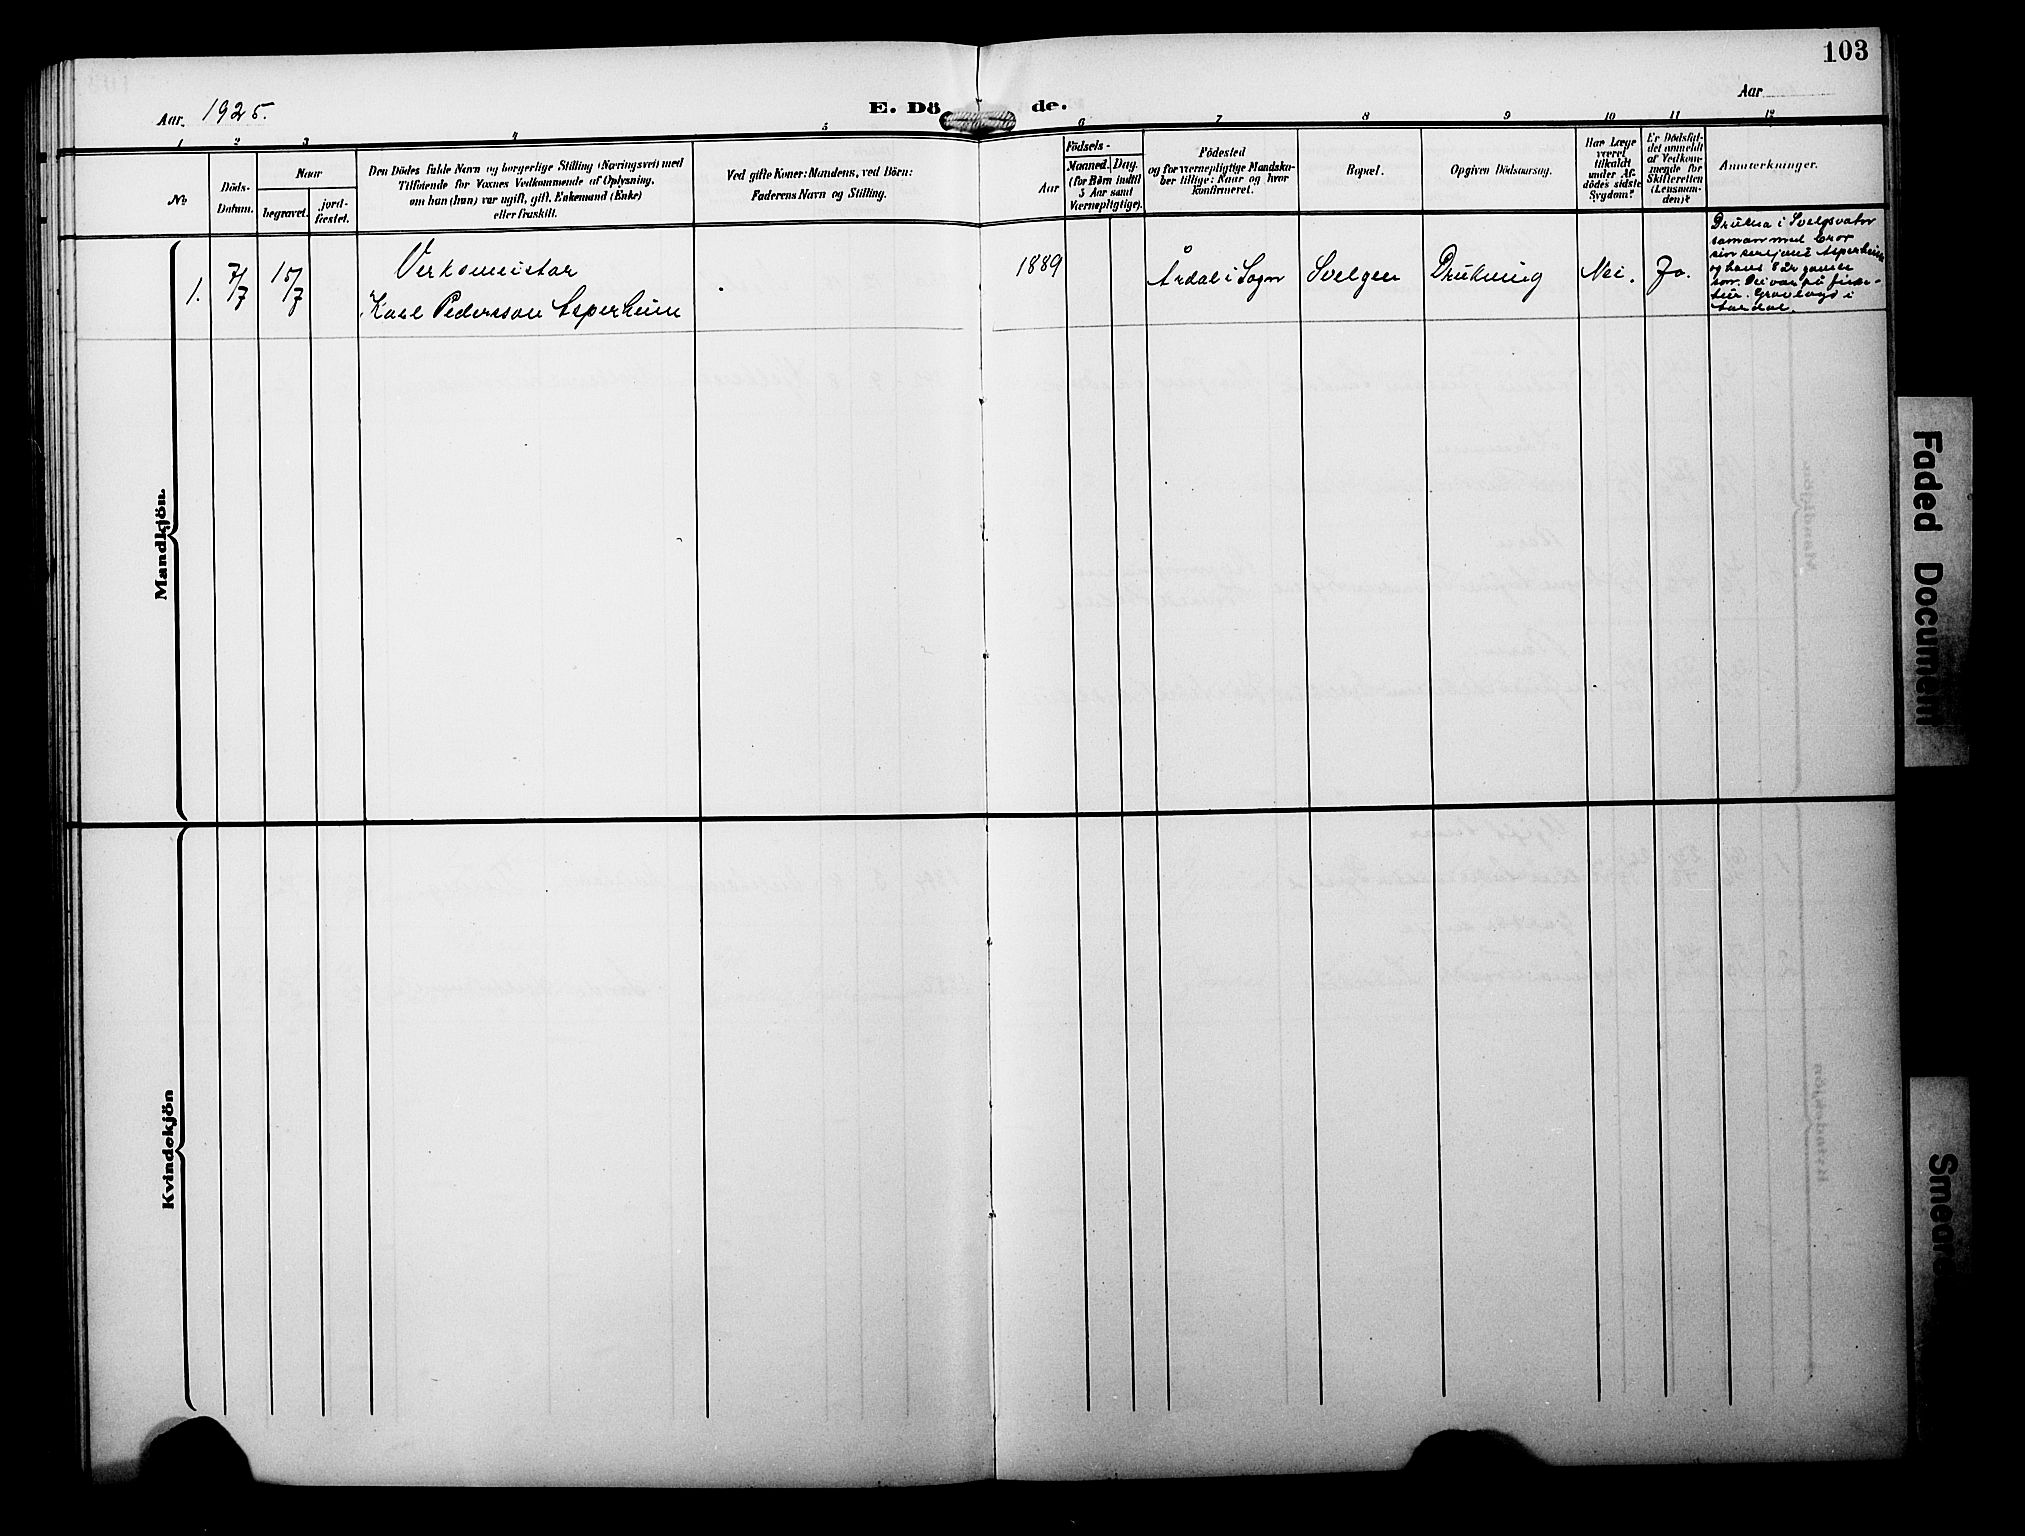 103
Aar. 1925.
E. Dö de.
Aar
1 2 3 4 5 6 7 8 9 10 11 12
No
Döds-
Datum.
Naar
begravet.
jord-
fæstet.
Den Dödes fulde Navn og borgerlige Stilling (Næringsvei) med
Tilföiende for Voxnes Vedkommende af Oplysning,
om han (hun) var ugift, gift, Enkemand (Enke)
eller fraskilt.
Ved gifte Koner: Mandens, ved Börn:
Faderens Navn og Stilling.
Födsels-
Aar
Maaned. Dag.
(for Börn indtil
3 Aar samt
Værnepligtige).
Födested
og for værnepligtige Mandska-
ber tillige: Naar og hvor
konfirmeret.
Bopæl.
Opgiven Dödsaarsag.
Har Læge
været
tilkaldt
under Af-
dödes sidste
Sygdom?
Er Dödsfal-
det anmeldt
af Vedkom-
mende for
Skifteretten
(Lensman-
den)?
Anmærkninger.
Mandkjön.
1.
7/7
15/7
Verksmeistar
Karl Pedersson Asperheim
1889
Årdal i Sogn
Svelgen
Drukning
Nei.
Ja.
Drukna i Svelgsvatn
saman med bror
sin Asperheim
og hans 8 år gamle
son. Dei var på fiske-
tur. Gravlagd i
Aardal.
Kvindekjön
Faded Document
Smeared